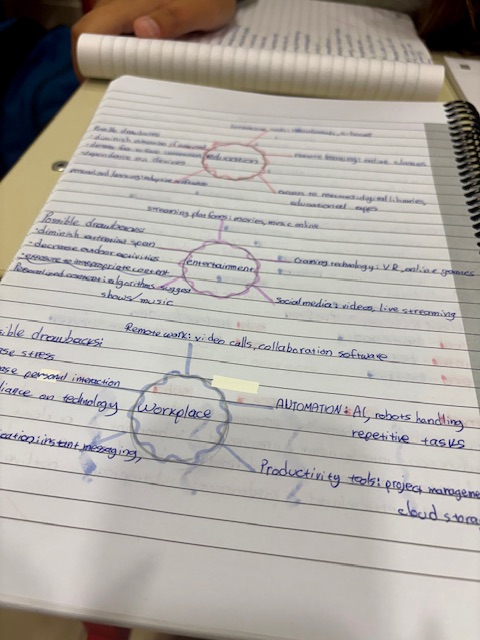 Possible drawbacks
dependance on devices
education
remote learning: online classes
access to resources: digital libraries,
educational apps
streaming platforms: movies, music online
Possible drawbacks
·diminish attention span
·decrease outdoor activities
·exposure to inappropriate content
Personalized content: algorithms suggest
shows/music
entertainment
Gaming technology: VR, online games
Social media: videos, live streaming
Remote work: video calls, collaboration software
sible drawbacks:
ase stress
ase personal interaction
liance on technology
Workplace
AUTOMATION: AI, robots handling
repetitive tasks
cation: instant messaging,
Productivity tools: project manageme
cloud stora